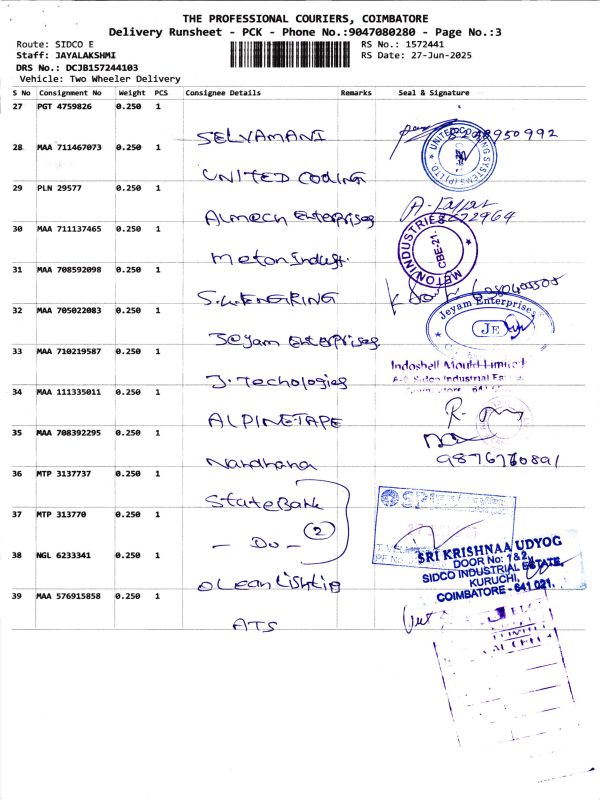 THE PROFESSIONAL COURIERS, COIMBATORE
Delivery Runsheet - PCK - Phone No.:9047080280 - Page No.:3
Route: SIDCO E
RS No.: 1572441
Staff: JAYALAKSHMI
RS Date: 27-Jun-2025
DRS No.: DCJB157244103
Vehicle: Two Wheeler Delivery
S No Consignment No Weight PCS Consignee Details Remarks Seal & Signature
27 PGT 4759826 0.250 1
SELVAMANI
950992
28 MAA 711467073 0.250 1
UNITED CODING SYSTEMS (P) LTD.
UNITED CODING
29 PLN 29577 0.250 1
Almech Enterprises
30 MAA 711137465 0.250 1
METON INDUSTRIES
CBE-21.
Meton Indust.
31 MAA 708592098 0.250 1
S.W.ENGRING
32 MAA 705022083 0.250 1
Jeyam Enterprises
JE
Jeyam Enterprises
33 MAA 710219587 0.250 1
Indoshell Mould Limited
J. Techologies
34 MAA 111335011 0.250 1
ALPINETAPE
35 MAA 708392295 0.250 1
Nandhana
9876760891
36 MTP 3137737 0.250 1
State Bank
37 MTP 313770 0.250 1
- Do -
2
38 NGL 6233341 0.250 1
SRI KRISHNAA UDYOG
DOOR No: 1&2,
SIDCO INDUSTRIAL ESTATE,
KURUCHI,
COIMBATORE - 641 021.
39 MAA 576915858 0.250 1
ATS